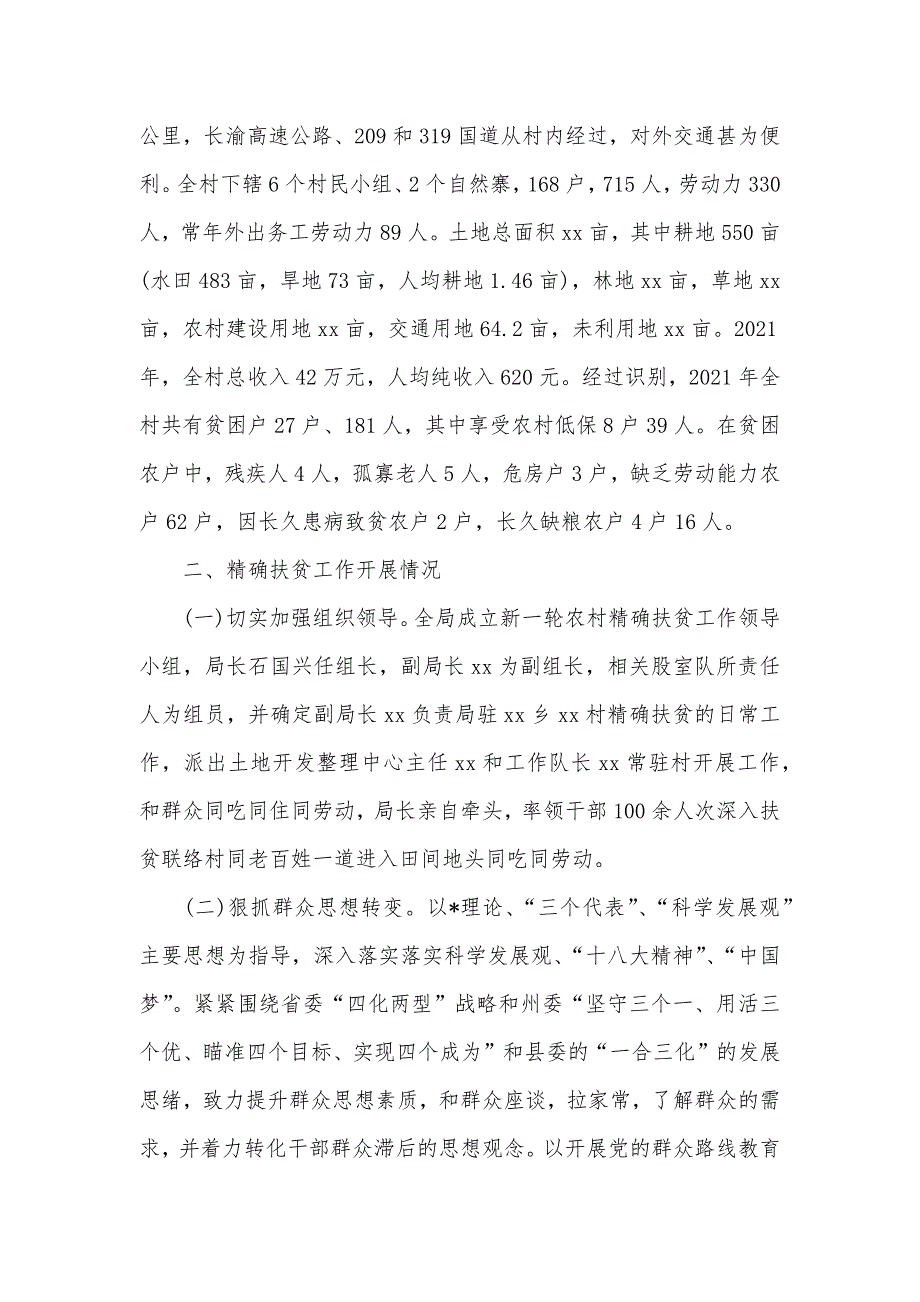 公里，长渝高速公路、209 和 319 国道从村内经过，对外交通甚为便
利。全村下辖 6 个村民小组、2 个自然寨，168 户，715 人，劳动力 330
人，常年外出务工劳动力 89 人。土地总面积 xx 亩，其中耕地 550 亩
(水田 483 亩，旱地 73 亩，人均耕地 1.46 亩)，林地 xx 亩，草地 xx
亩，农村建设用地 xx 亩，交通用地 64.2 亩，未利用地 xx 亩。2021
年，全村总收入 42 万元，人均纯收入 620 元。经过识别，2021 年全
村共有贫困户 27 户、181 人，其中享受农村低保 8 户 39 人。在贫困
农户中，残疾人 4 人，孤寡老人 5 人，危房户 3 户，缺乏劳动能力农
户 62 户，因长久患病致贫农户 2 户，长久缺粮农户 4 户 16 人。
二、精确扶贫工作开展情况
(一)切实加强组织领导。全局成立新一轮农村精确扶贫工作领导
小组，局长石国兴任组长，副局长 xx 为副组长，相关股室队所责任
人为组员，并确定副局长 xx 负责局驻 xx 乡 xx 村精确扶贫的日常工
作，派出土地开发整理中心主任 xx 和工作队长 xx 常驻村开展工作，
和群众同吃同住同劳动，局长亲自牵头，率领干部 100 余人次深入扶
贫联络村同老百姓一道进入田间地头同吃同劳动。
(二)狠抓群众思想转变。以*理论、“三个代表”、“科学发展观”
主要思想为指导，深入落实落实科学发展观、“十八大精神”、“中国
梦”。紧紧围绕省委“四化两型”战略和州委“坚守三个一、用活三
个优、瞄准四个目标、实现四个成为”和县委的“一合三化”的发展
思绪，致力提升群众思想素质，和群众座谈，拉家常，了解群众的需
求，并着力转化干部群众滞后的思想观念。以开展党的群众路线教育